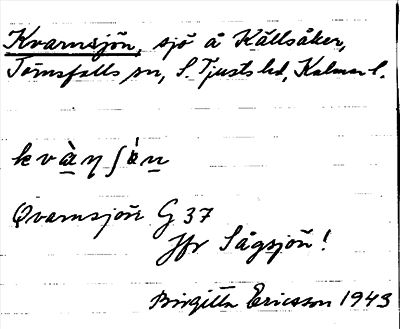 Kvarnsjön, sjö å Källsåker,
Törnsfalls sn, S. Tjusts hd, Kalmar l.
kvànʃön
Qvarnsjön G 37
Jfr Sågsjön!
Birgitta Ericsson 1943